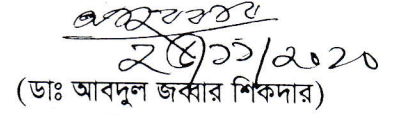 ২৫/১১/২০২০
(ডাঃ আবদুল জব্বার শিকদার)